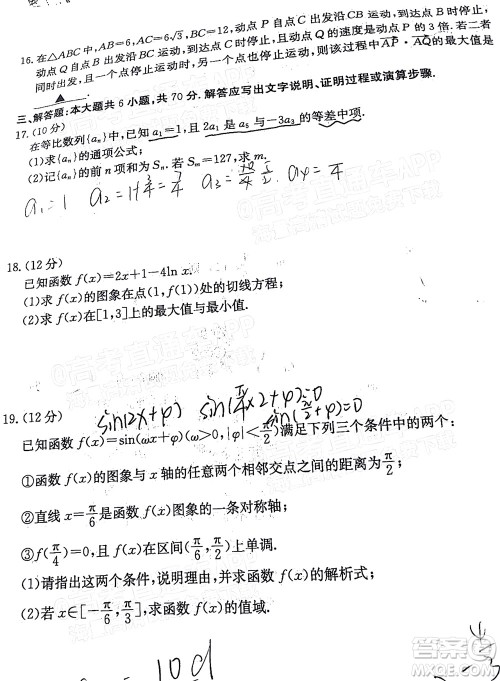 16. 在△ABC 中，AB=6，AC=6√3，BC=12，动点 P 自点 C 出发沿 CB 运动，到达点 B 时停止，
动点 Q 自点 B 出发沿 BC 运动，到达点 C 时停止，且动点 Q 的速度是动点 P 的 3 倍. 若二者
同时出发，且一个点停止运动时，另一个点也停止运动，则该过程中 AP·AQ 的最大值是
▲.
三、解答题：本大题共 6 小题，共 70 分. 解答应写出文字说明、证明过程或演算步骤.
17. (10 分)
在等比数列{aₙ}中，已知 a₁=1，且 2a₄ 是 a₅ 与 -3a₃ 的等差中项.
(1)求{aₙ}的通项公式；
(2)记{aₙ}的前 n 项和为 Sₙ. 若 Sₘ=127，求 m.
a₁=1
18. (12 分)
已知函数 f(x)=2x+1-4ln x.
(1)求 f(x)的图象在点(1, f(1))处的切线方程；
(2)求 f(x)在[1,3]上的最大值与最小值.
19. (12 分)
sin(2x+φ) sin(π/4×2+φ)=0
sin(π/2+φ)=0
已知函数 f(x)=sin(ωx+φ)(ω>0, |φ|<π/2)满足下列三个条件中的两个：
①函数 f(x)的图象与 x 轴的任意两个相邻交点之间的距离为 π/2；
②直线 x=π/6 是函数 f(x)图象的一条对称轴；
③f(π/4)=0，且 f(x)在区间(π/6, π/2)上单调.
(1)请指出这两个条件，说明理由，并求函数 f(x)的解析式；
(2)若 x∈[-π/6, π/3]，求函数 f(x)的值域.
10d